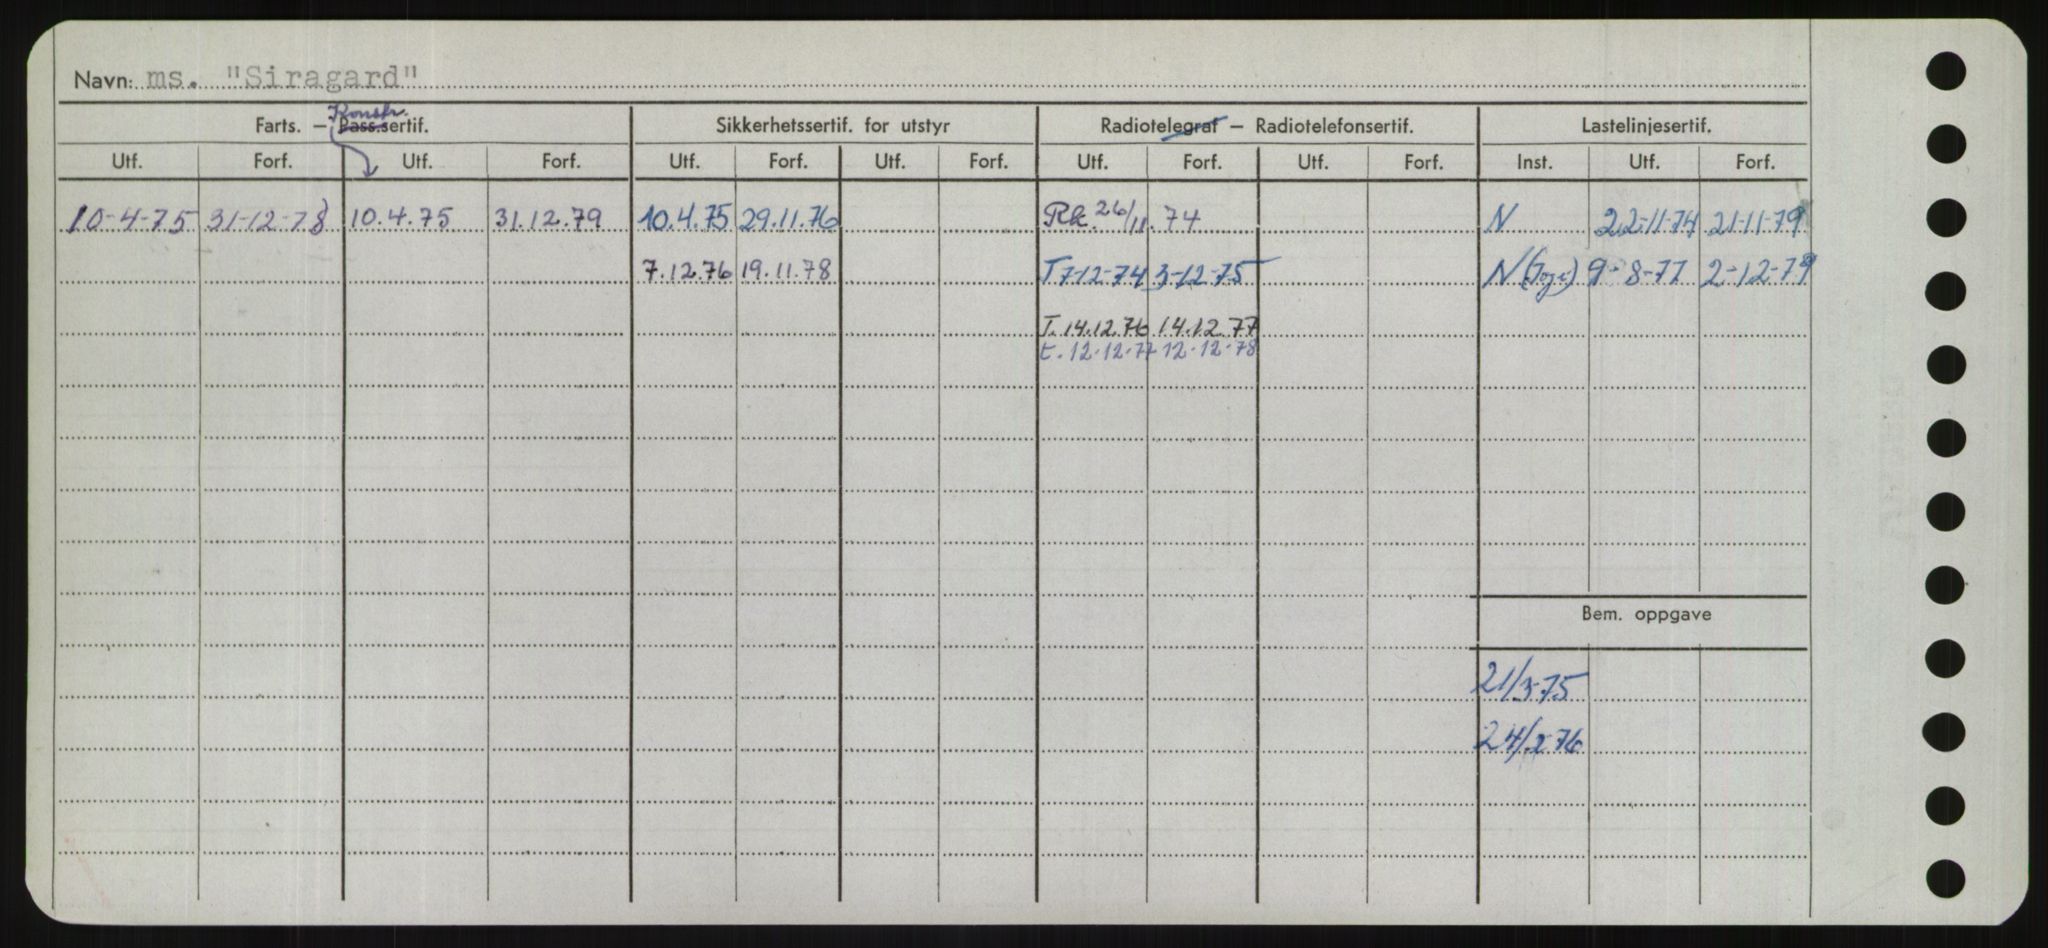 Navn: ms. "Siragard"
Konstr.
Farts. – Pass.sertif. Sikkerhetssertif. for utstyr Radiotelegraf – Radiotelefonsertif. Lastelinjesertif.
Utf. Forf. Utf. Forf. Utf. Forf. Utf. Forf. Utf. Forf. Utf. Forf. Inst. Utf. Forf.
10-4-75 31-12-78 10.4.75 31.12.79 10.4.75 29.11.76 Rk. 26/11. 74 N 22-11-74 21-11-79
7.12.76 19.11.78 T 7-12-74 3-12-75 N 9-8-77 2-12-79
T. 14.12.76 14.12.77
t. 12-12-77 12-12-78
Bem. oppgave
21/3-75
24/2-76